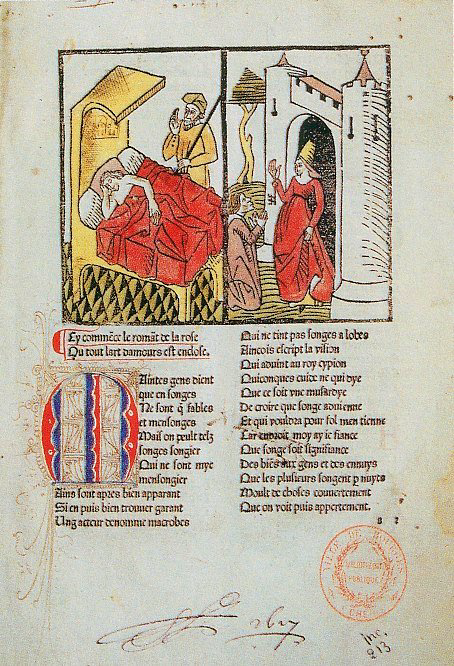 Cy commēce le romāt de la rose
Ou tout lart damours est enclose.
Maintes gens dient
que en songes
Ne sont q̄ fables
et mensonges
Mais on peult telz
songes songier
Qui ne sont mye
mensongier
Ains sont apres bien apparant
Si en puis bien trouuer garant
Ung acteur denomme macrobes
Qui ne tint pas songes a lobes
Aincois escript la vision
Qui aduint au roy cypion
Quiconques cuide ne qui dye
Que ce soit vne musardye
De croire que songe aduienne
Et qui vouldra pour fol men tienne
Car endroit moy ay ie fiance
Que songe soit signifiance
Des biēs aux gens et des ennuys
Que les plusieurs songent p nuyts
Moult de choses couuertement
Que on voit puis appertement.
VILLE DE
PUBLIQUE
Inc.
213